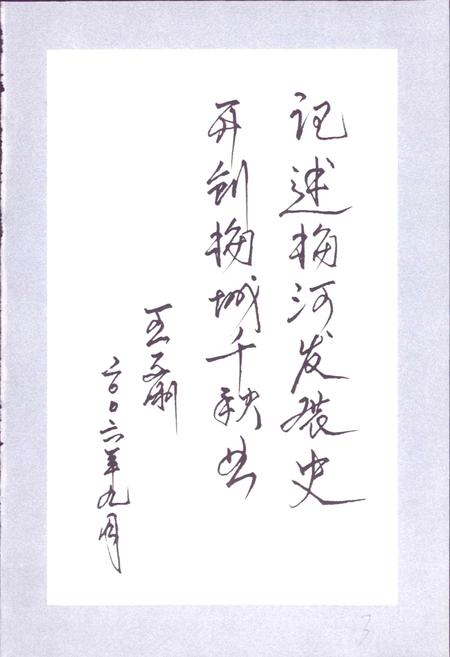 记述梅河发展史
再创梅城千秋业
王
二〇〇六年九月
3